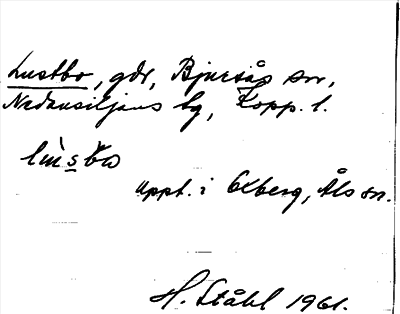 Lustbo, gdr, Bjursås sn,
Nedansiljans bg, Kopp. l.
lùsbo
uppt. i Ekberg, Åls sn.
H. Ståhl 1961.